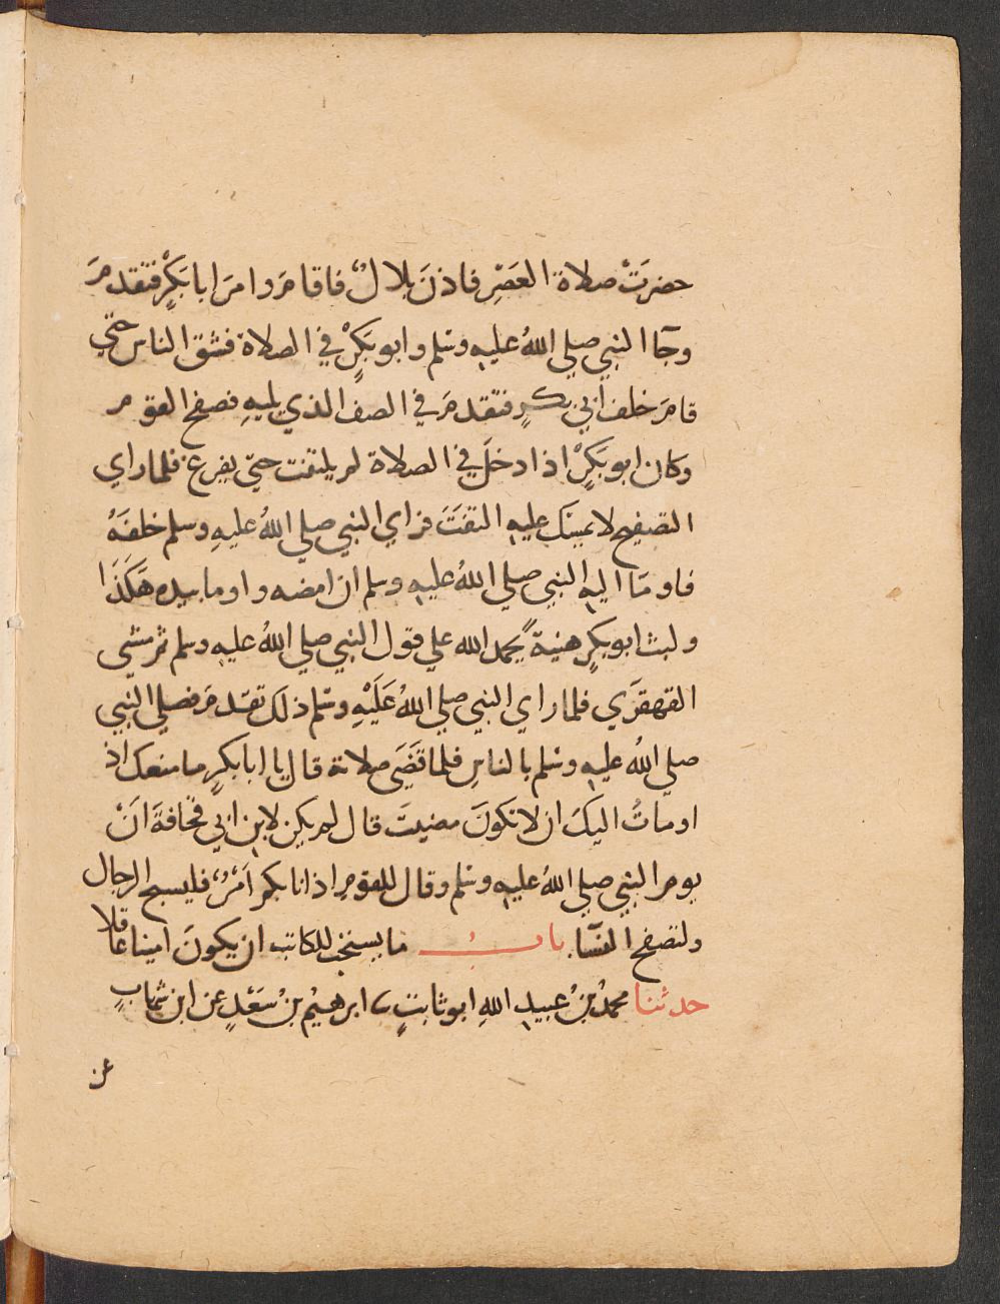 حضرَتْ صلاة العَصْرِ فاذنَ بلالٌ فاقامَ وامرَ ابا بَكْرٍ فتقدمَ
وجآ النبي صلي اللهُ عليهِ وسَلم وابو بَكْرٍ في الصلاة فشق الناس حتي
قامَ خلف ابي بكرٍ فتقدمَ في الصف الذي يليهِ فصفح القوم
وكان ابو بَكْرٍ اذا دخلَ في الصلاة لم يلتفت حتي يفرغ فلما راي
التصفيح لا يمسَك عليهِ التفتَ فراي النبي صلي اللهُ عليهِ وسلم خلفَهُ
فاومَا اليهِ النبي صلي اللهُ عليهِ وسلم ان امضه واوما بيده هَكَذَا
ولبث ابو بكرٍ هنيةً يحمد الله علي قول النبي صلي اللهُ عليهِ وسلم ثم مشي
القهقرَي فلما راي النبي صلي اللهُ عَلَيْهِ وسَلم ذلك تقدمَ فصلي النبي
صلي اللهُ عليهِ وسَلم بالناسِ فلما قَضَي صلاته قال يا ابا بكرٍ ما منعك اذ
اوماتُ اليكَ ان لا تكونَ مضيتَ قال لم يكن لابن ابي قحافةَ انْ
يوم النبي صلي اللهُ عليهِ وسَلم وقال للقومِ اذا نابكم اَمْرٌ فليسبح الرجال
ولتصفح النسَآ بابُ ما يستحب للكاتب ان يكونَ امينا عاقلا
حدثنا محمدُ بنُ عبيدِ اللهِ ابو ثابتٍ ثنا ابرهيْم بنُ سَعْدٍ عن ابن شهابٍ
عن